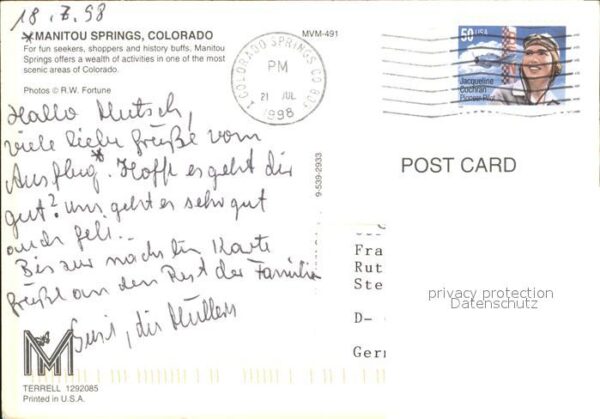 18.7.98
*MANITOU SPRINGS, COLORADO
For fun seekers, shoppers and history buffs, Manitou
Springs offers a wealth of activities in one of the most
scenic areas of Colorado.
Photos © R.W. Fortune
MVM-491
COLORADO SPRINGS CO
PM
21 JUL
1998
50 USA
Jacqueline
Cochran
Pioneer Pilot
Hallo Mutsch,
viele liebe Grüße vom
Ausflug*. Hoffe es geht dir
gut? Uns geht es sehr gut
auch
Bis zur nächsten Karte
Grüßt an den Rest der Familie
die Müllers
9-539-2933
POST CARD
Fra
Rut
Ste
D-
Gerr
privacy protection
Datenschutz
M
TERRELL 1292085
Printed in U.S.A.